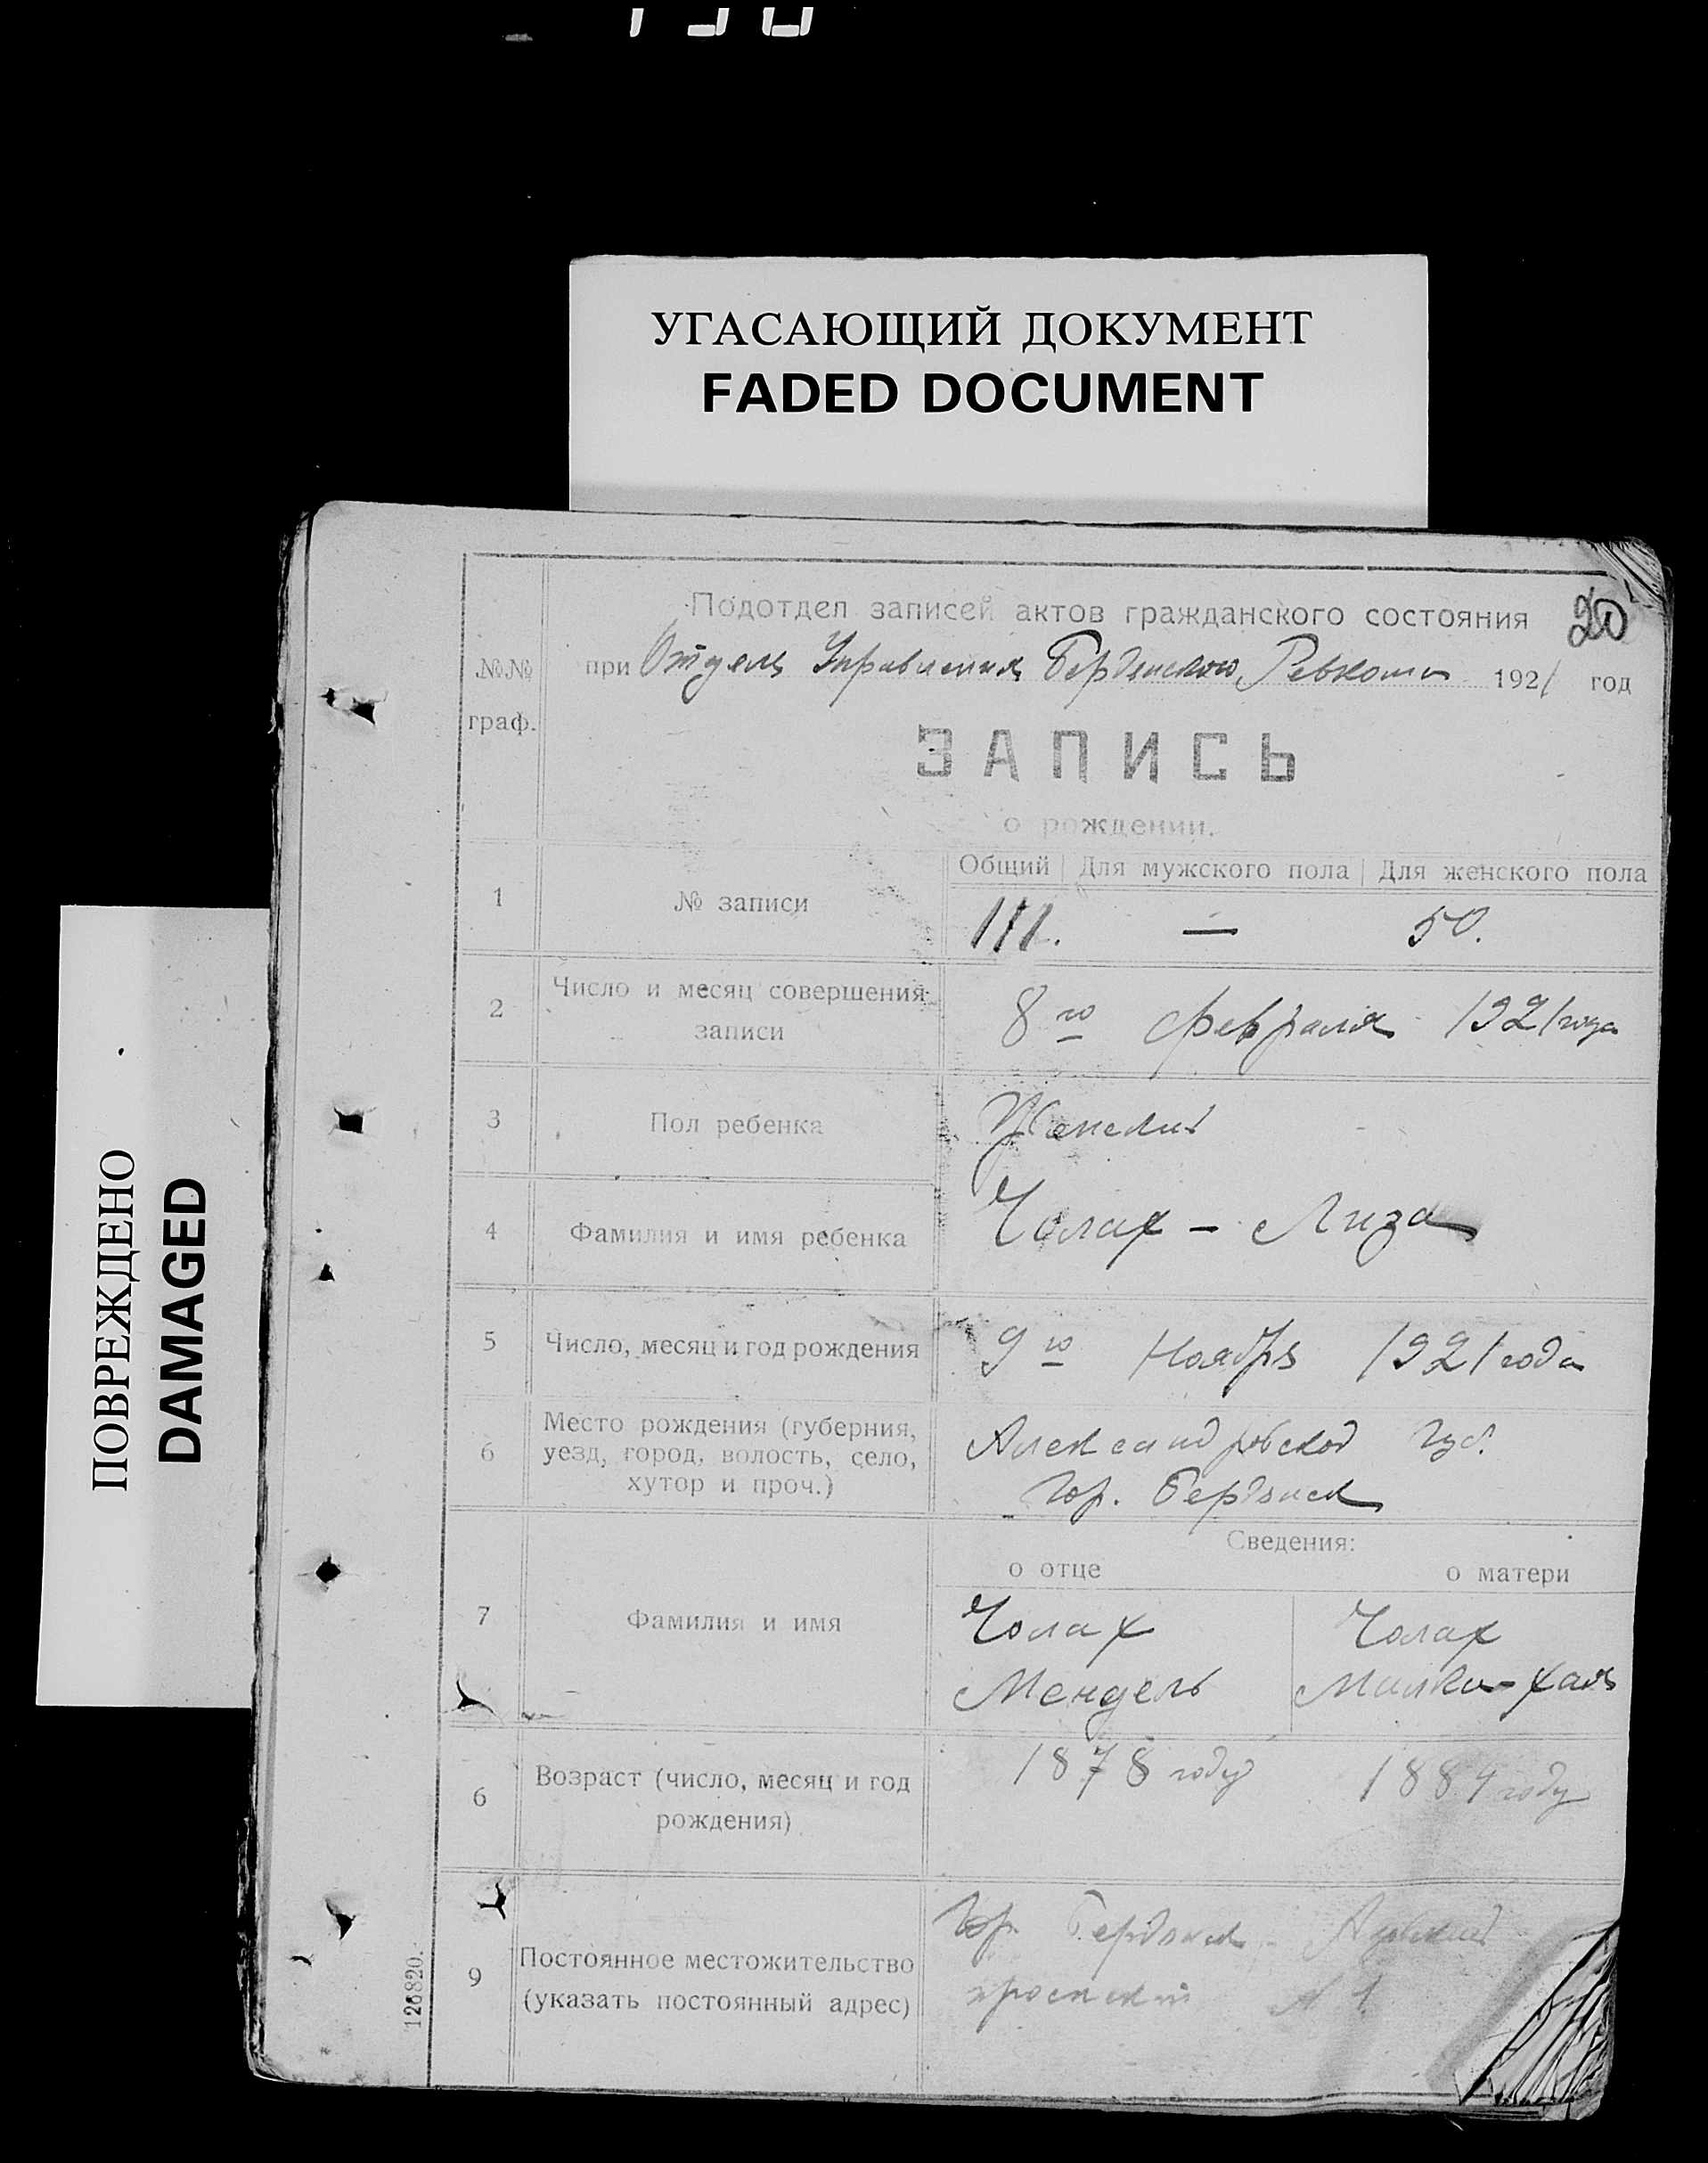 УГАСАЮЩИЙ ДОКУМЕНТ
FADED DOCUMENT
ПОВРЕЖДЕНО
DAMAGED
20
Подотдел записей актов гражданского состояния
№№ граф.
при Отделъ Управления Бердянского Ревкома 1921 год
ЗАПИСЬ
о рождении.
Общий Для мужского пола Для женского пола
1 № записи 111. — 50.
2 Число и месяц совершения записи
8го февраля 1921 года
3 Пол ребенка Женский
4 Фамилия и имя ребенка Чолах - Лиза
5 Число, месяц и год рождения 9го Ноября 1921 года
6 Место рождения (губерния, уезд, город, волость, село, хутор и проч.)
Александровской Губ.
Гор. Бердянск
Сведения:
о отце о матери
7 Фамилия и имя
Чолах Чолах
Мендель Малка-Хая
6 Возраст (число, месяц и год рождения)
1878 году 1884 году
9 Постоянное местожительство (указать постоянный адрес)
Гор. Бердянск Азовский
проспект № 1
126820.